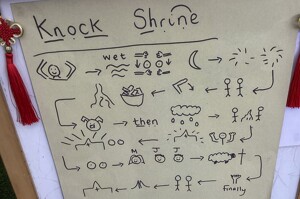 Knock Shrine
wet
then
M J J
finally